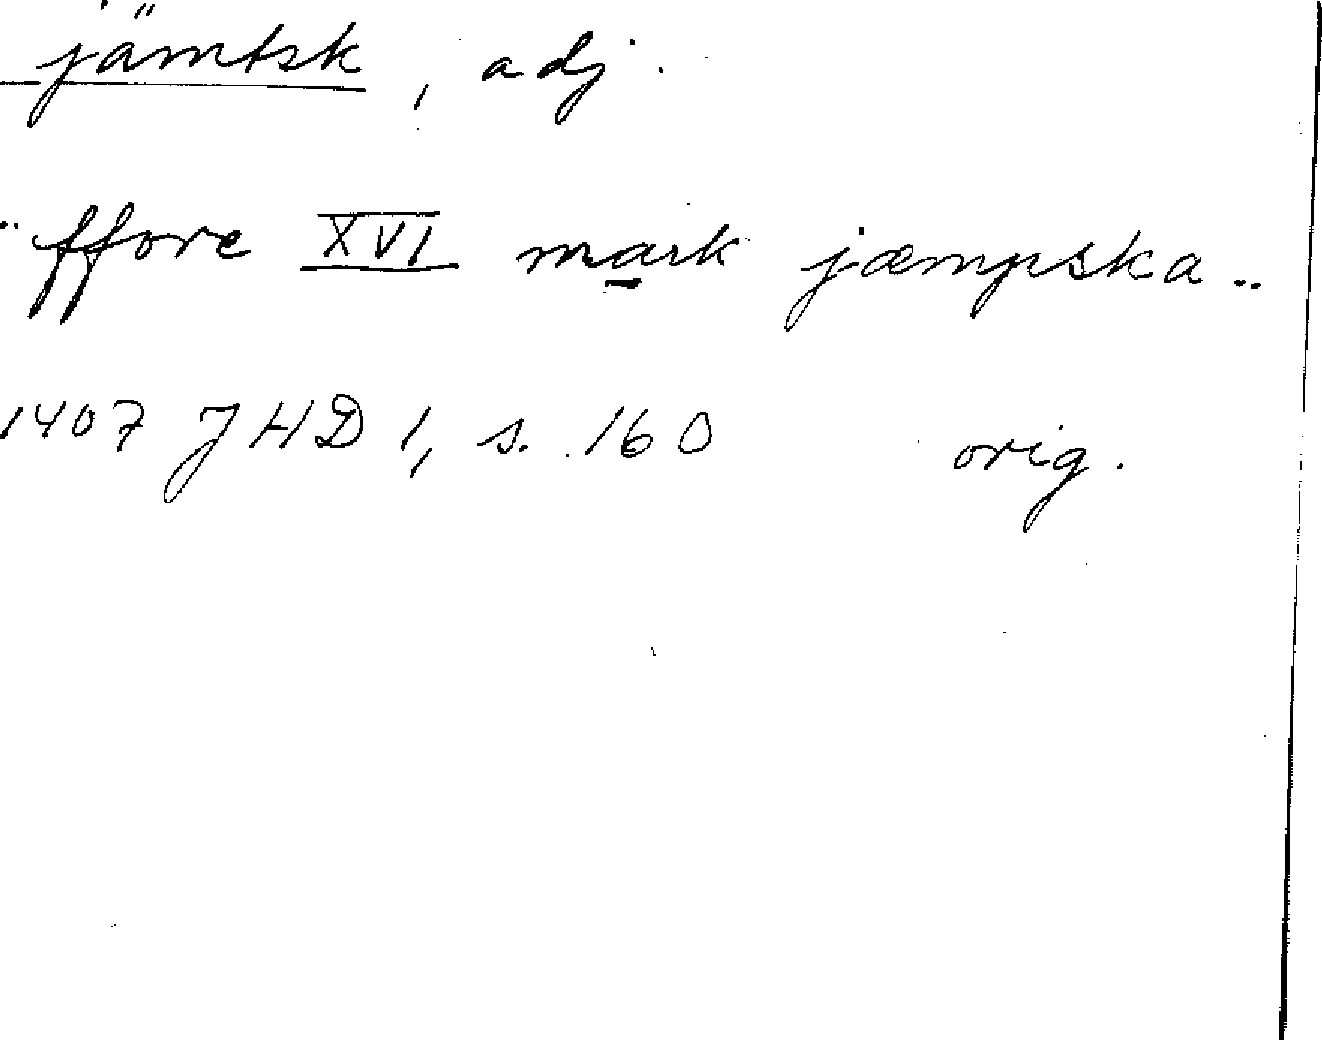 jämtsk, adj.
.. ffore XVI mark jæmpska ..
1407 JHD 1, s. 160 orig.